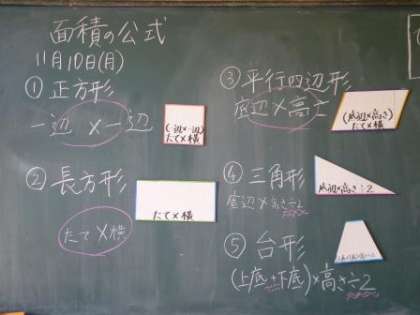 面積の公式
11月10日(月)
①正方形
一辺×一辺
(一辺×一辺)
たて×横
②長方形
たて×横
たて×横
③平行四辺形
底辺×高さ
(底辺×高さ)
たて×横
④三角形
底辺×高さ÷2
底辺×高さ÷2
⑤台形
(上底+下底)×高さ÷2